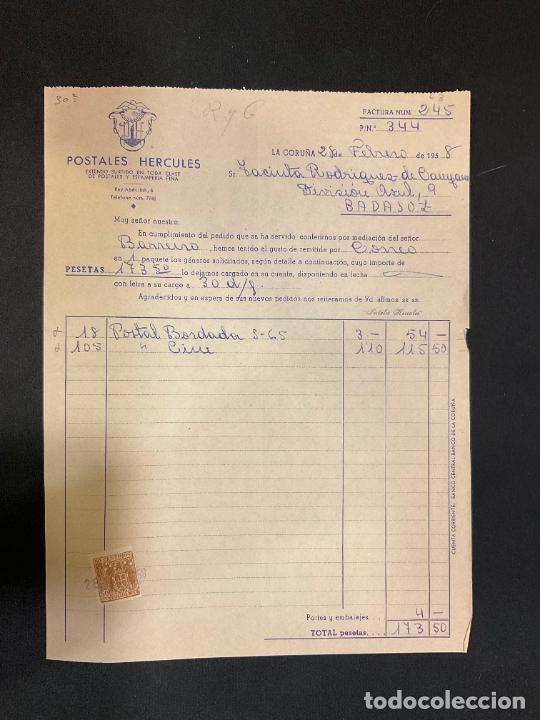 30
R y C
FACTURA NUM. 245
P/N.º 344
POSTALES HERCULES
EXTENSO SURTIDO EN TODA CLASE
DE POSTALES Y ESTAMPERIA FINA
Teléfono núm.
LA CORUÑA 28 de Febrero de 1958
Sr. Jacinta Rodriguez de
División Azul, 9
BADAJOZ
Muy señor nuestro:
En cumplimiento del pedido que se ha servido conferirnos por mediación del señor
Barreiro, hemos tenido el gusto de remitirle por Correo
en 1 paquete los géneros solicitados, según detalle a continuación, cuyo importe de
PESETAS 173'50 lo dejamos cargado en su cuenta, disponiendo en fecha
con letra a su cargo a 30 d/f.
Agradecidos y en espera de sus nuevos pedidos nos reiteramos de Vd. affmos. ss. ss.
18 Postal Bordada S-65 3 — 54 —
105 " Cine 1'10 115 50
CUENTA CORRIENTE: BANCO CENTRAL-BANCO DE LA CORUÑA
Portes y embalajes. . . 4 —
TOTAL pesetas. . . 173 50
todocoleccion
todocoleccion.net